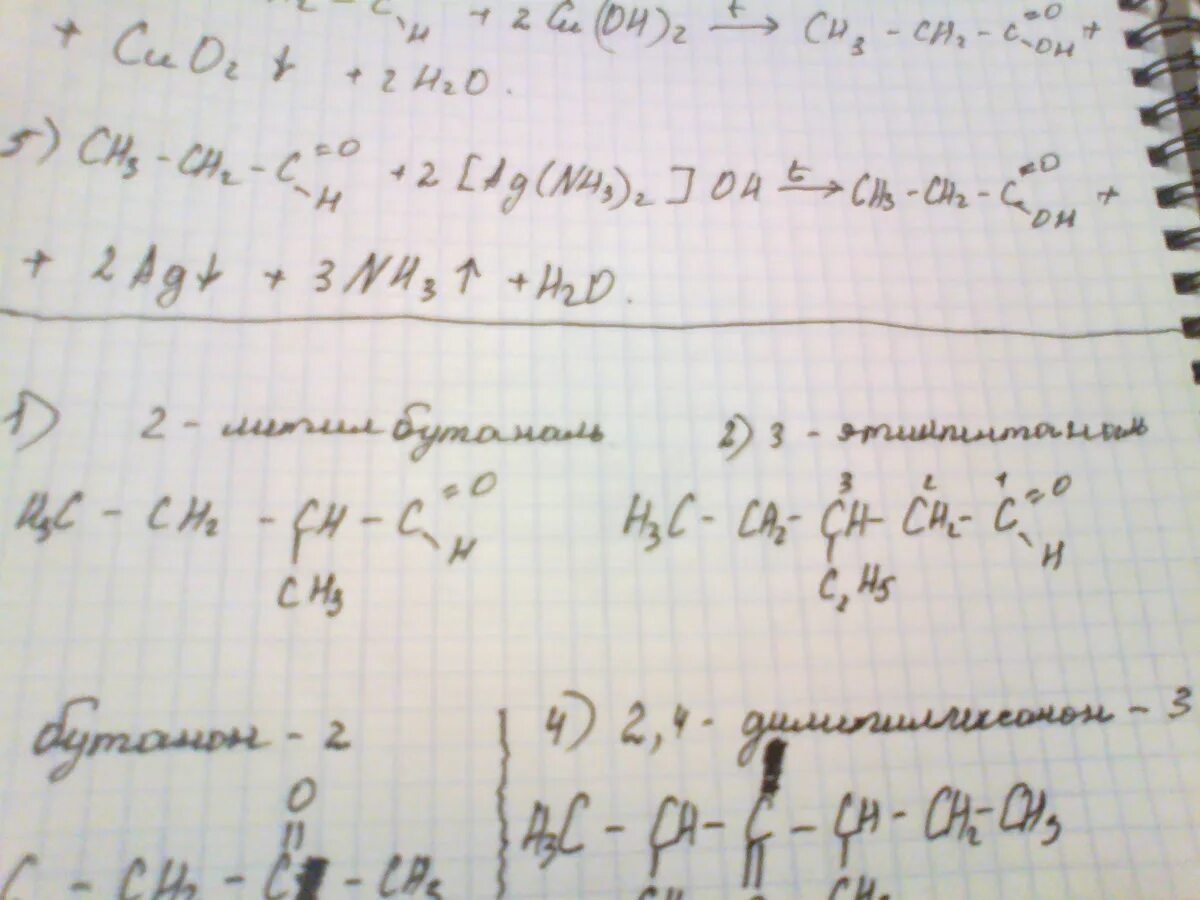 H₂ - C - H + 2 Cu(OH)₂ t→ CH₃ - CH₂ - C =O -OH +
+ CuO₂ ↓ + 2 H₂O.
5) CH₃ - CH₂ - C =O -H + 2 [Ag(NH₃)₂] OH t→ CH₃ - CH₂ - C =O -OH +
+ 2 Ag↓ + 3 NH₃ ↑ + H₂O.
1) 2 - метил бутаналь
H₃C - CH₂ - CH - C =O -H
CH₃
2) 3 - этилпентаналь
3 2 1
H₃C - CH₂ - CH - CH₂ - C =O -H
C₂H₅
бутанон - 2
O
C - CH₂ - C - CH₃
4) 2,4 - диметилгексанон - 3
H₃C - CH - C - CH - CH₂ - CH₃
CH CH₃